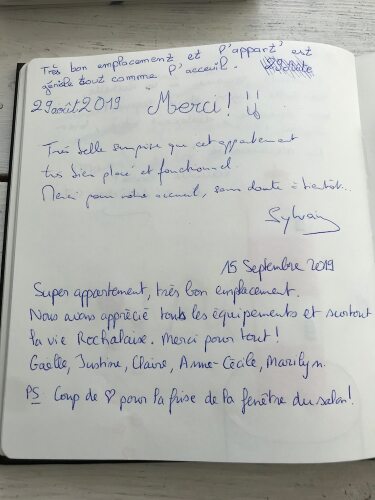 Très bon emplacement et l'appart' est
géniale tout comme l'acceuil.
29 août 2019 Merci! !!
Très belle surprise que cet appartement
très bien placé et fonctionnel.
Merci pour votre accueil, sans doute à bientôt...
Sylvain
15 Septembre 2019
Super appartement, très bon emplacement.
Nous avons apprécié touts les équipements et surtout
la vie Rochelaise. Merci pour tout!
Gaëlle, Justine, Claire, Anne-Cécile, Marilyn.
PS Coup de ♡ pour la frise de la fenêtre du salon!